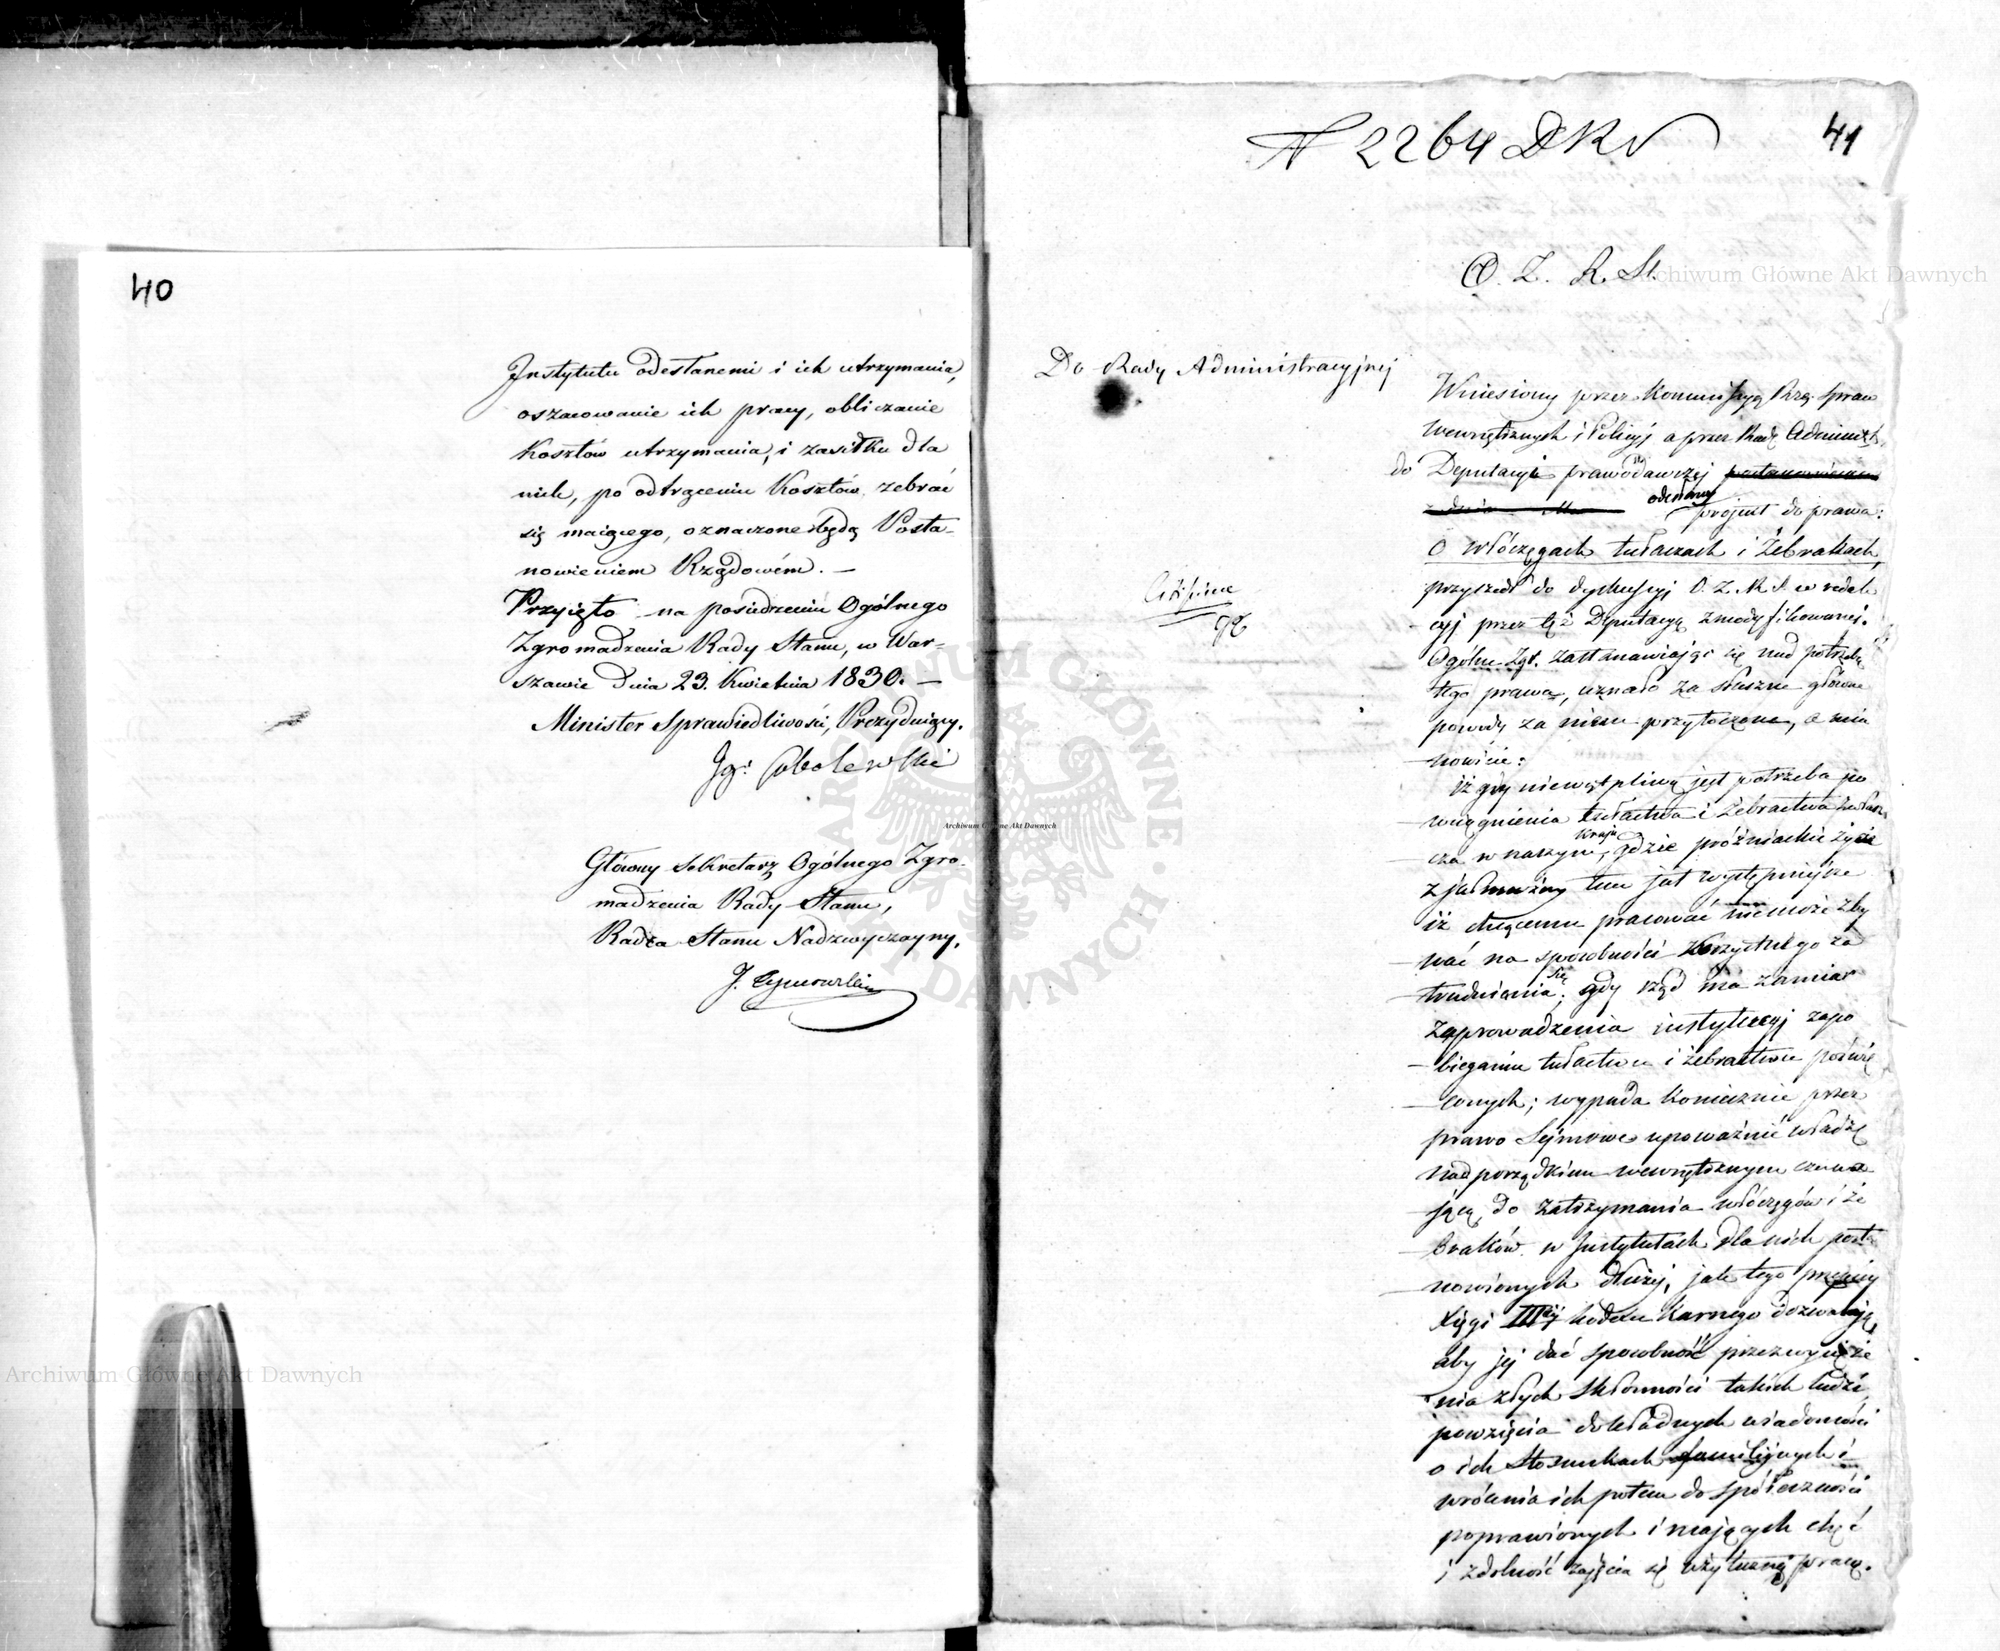 40
Instytutu odesłanemi i ich utrzymania,
oszacowanie ich pracy, obliczanie
Kosztów utrzymania, i zasiłku dla
nich, po odtrąceniu Kosztów zebrać
się maiącego, oznaczone będą Posta-
nowieniem Rządowém. —
Przyięto na posiedzeniu Ogólnego
Zgromadzenia Rady Stanu, w War-
szawie Dnia 23. Kwietnia 1830. —
Minister Sprawiedliwości, Prezyduiący.
Ig: Sobolewski
Główny Sekretarz Ogólnego Zgro-
madzenia Rady Stanu,
Radca Stanu Nadzwyczayny.
J. Tymowski
N 2264 DKP
41
O. Z. R. St.
Do Rady Administracyjnej
Wniesiony przez Kommissyą Rzą. Spraw
wewnętrznych i Policyi a przez Radę Administ.
do Deputacyi prawodawczej
odesłany projekt do prawa:
O włóczęgach tułaczach i Żebrakach,
przyszedł do dyskussyi O. Z. R. S. w redak
cyj przez tęż Deputacyą zmodyfikowanej.
Ogólne Zgr. zastanawiając się nad potrzebą
tego prawa, uznało za słuszne główne
powody za niem przytoczone, a mia
nowicie:
iż gdy niewątpliwą jest potrzeba po
wciągnienia tułactwa i żebractwa zwłasz
cza w naszym kraju, gdzie próżniackie życie
z jałmużny tem jest występniejsze
iż chcącemu pracować nie może zby
wać na sposobności korzystnego za
trudnienia się; gdy rząd ma zamiar
zaprowadzenia instytucyj zapo
bieganiu tułactwu i żebractwu poświę
conych; wypada koniecznie przez
prawo Sejmowe upoważnić władzę
nad porządkiem wewnętrznym czuwa
jącą, do zatrzymania włóczęgów i że
braków w Instytutach dla nich posta
nowionych dłużej, jak tego przepisy
Xięgi IIIciej kodexu karnego dozwalają,
aby jej dać sposobność przezwycięże
nia złych skłonności takich ludzi,
powzięcia dokładnych wiadomości
o ich stosunkach familijnych i
wrócenia ich potem do społeczności
poprawionych i mających chęć
i zdolność zajęcia się użyteczną pracą.
Archiwum Główne Akt Dawnych
Archiwum Główne Akt Dawnych
Archiwum Główne Akt Dawnych
ARCHIWUM GŁÓWNE AKT DAWNYCH